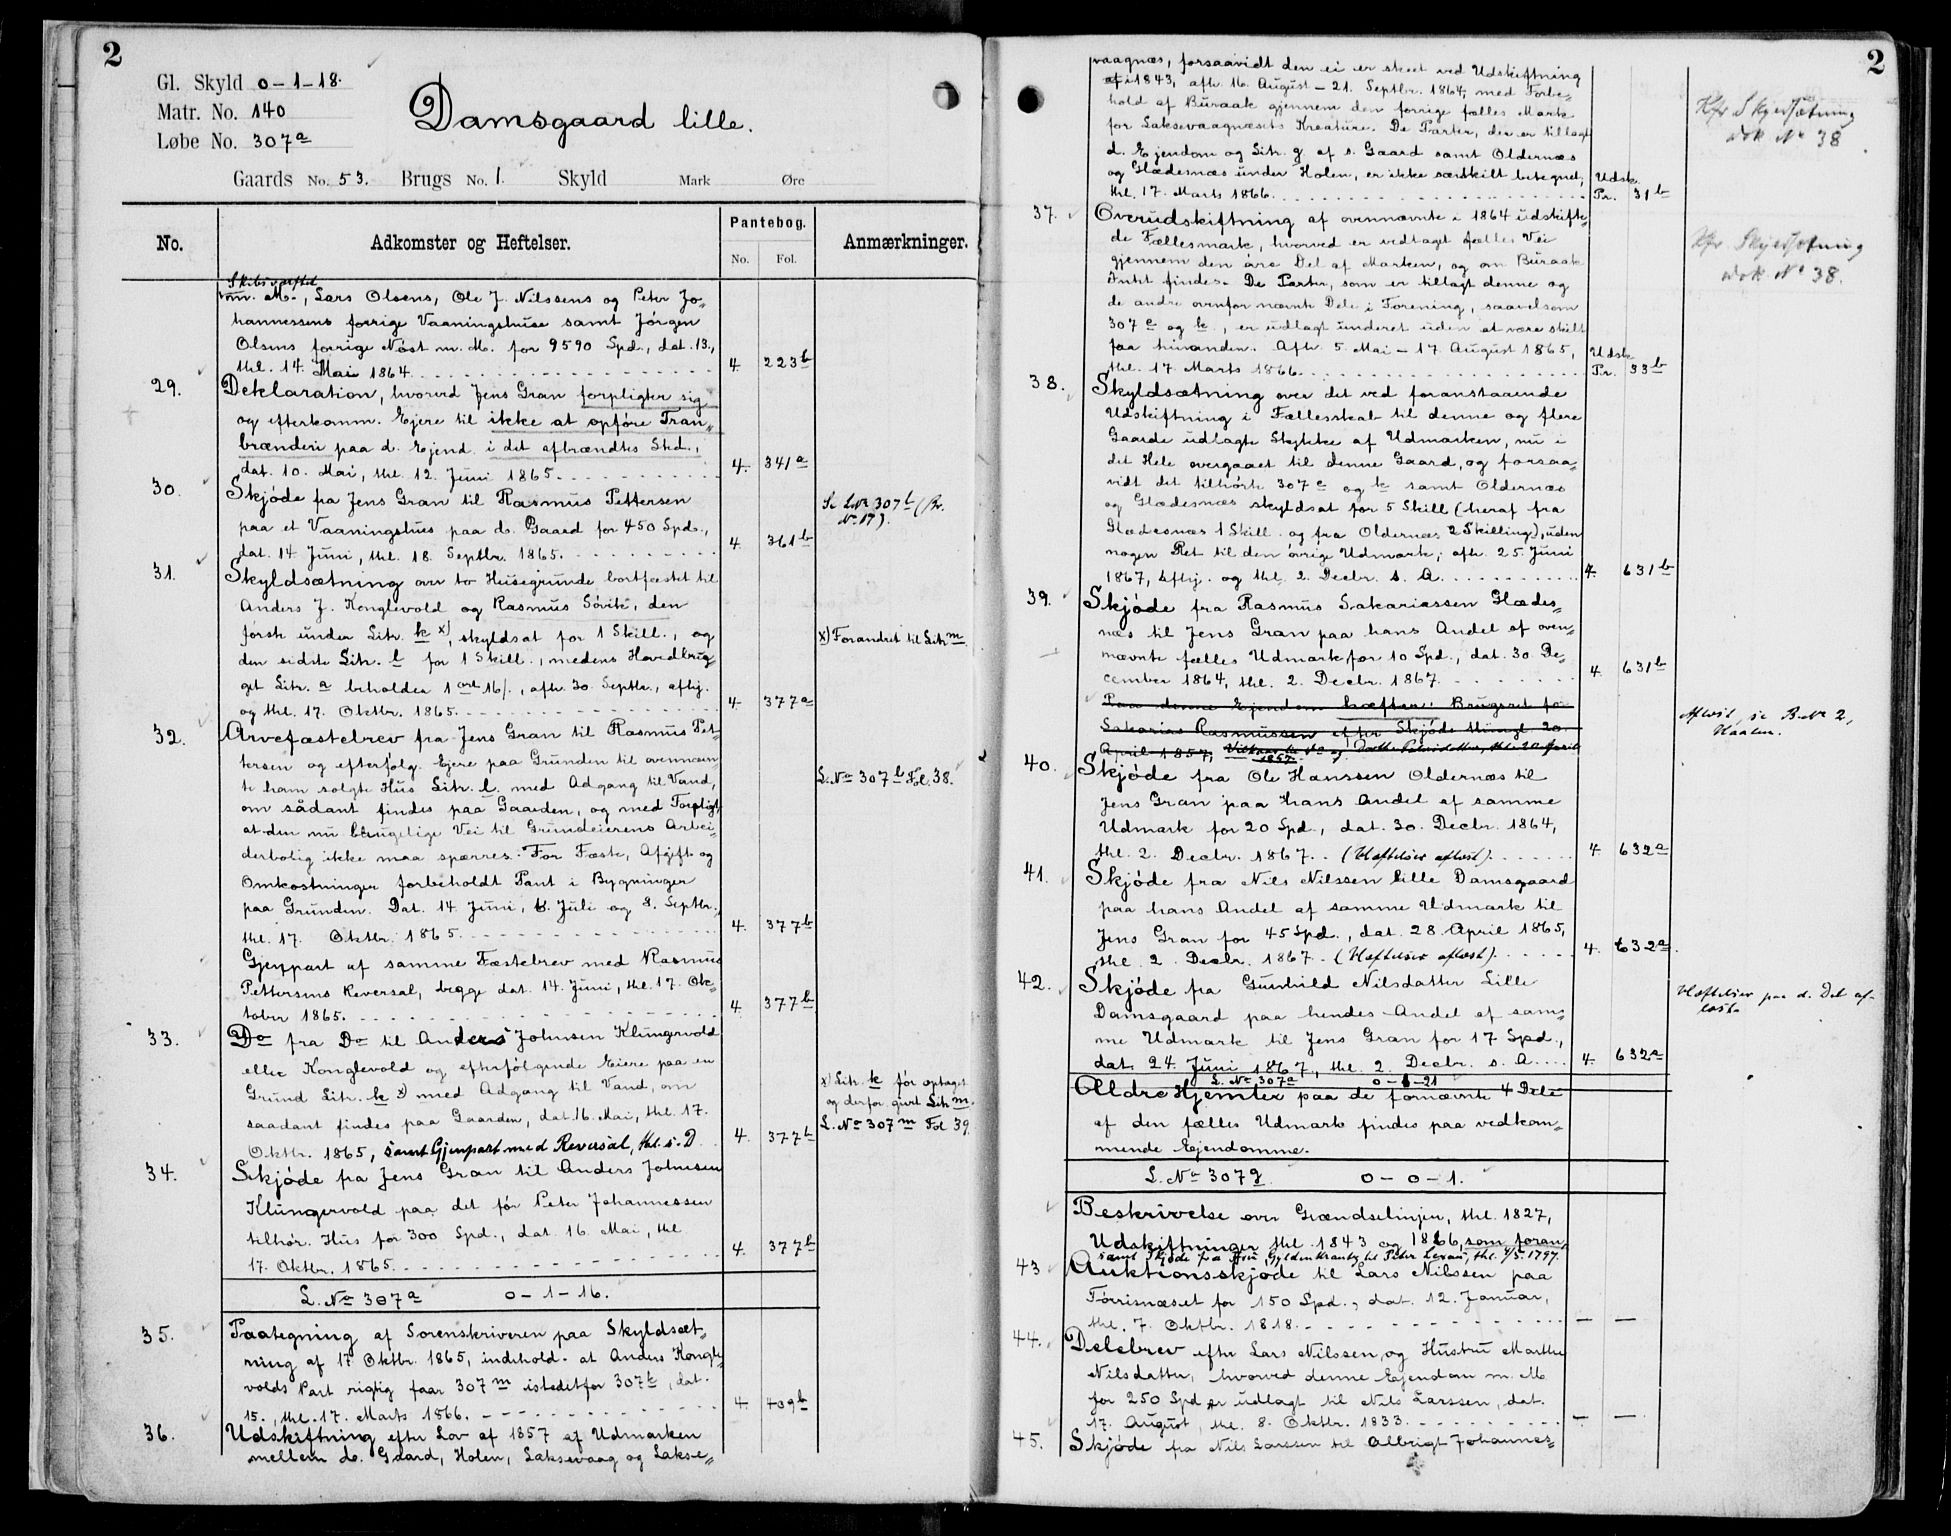 2
Gl. Skyld 0-1-18.
Matr. No. 140
Løbe No. 307a
Damsgaard lille.
Gaards No. 53. Brugs No. 1. Skyld Mark Øre
No. Adkomster og Heftelser. Pantebog. Anmærkninger.
No. Fol.
Skibsværftet
m. M., Lars Olsens, Ole J. Nilssens og Peter Jo-
hannessens forrige Vaaningshuse samt Jörgen
Olsens forrige Nöst m. M. for 9590 Spd., dat. 13.,
thl. 14. Mai 1864. 4. 223b
29. Deklaration, hvorved Jens Gran forpligter sig
og efterkomm. Ejere til ikke at opföre Tran-
brænderi paa d. Ejend. i det afbrændtes Sted.,
dat. 10. Mai, thl. 12. Juni 1865. 4. 341a
30. Skjöde fra Jens Gran til Rasmus Pettersen
paa et Vaaningshus paa d. Gaard for 450 Spd.,
dat. 14 Juni, thl. 18. Septbr. 1865. 4. 361b
Se LNr 307l (Br.
No. 17).
31. Skyldsætning over to Husegrunde bortfæstet til
Anders J. Konglevold og Rasmus Sövik, den
först under Litr. k x), skyldsat for 1 Skill., og
x) Forandret til Litr m.
den sidste Litr. l for 1 Skill., medens Hovedbrug-
get Litr. a beholder 1 ort 16/., afh. 30. Septbr., afhj.
og thl. 17. Oktbr. 1865. 4. 377a
32. Arvefæstebrev fra Jens Gran til Rasmus Pet-
tersen og efterfolg. Ejere paa Grunden til ovennævn-
te ham solgte Hus Litr. l. med Adgang til Vand,
L. No 307 l Fol. 38.
om sådant findes paa Gaarden, og med Forpligt.
at den nu brugelige Vei til Grundeierens Arbei-
derbolig ikke maa spærres. For Fæste, Afgift og
Omkostninger forbeholdt Pant i Bygninger
paa Grunden. Dat. 14. Juni, 6. Juli og 8. Septbr.,
thl. 17. Oktbr. 1865. 4. 377b
Gjenpart af samme Fæstebrev med Rasmus
Pettersens Reversal, begge dat. 14. Juni, thl. 17. Ok-
tober 1865. 4 377b
33. Do fra Do til Anders Johnsen Klungervold
eller Konglevold og efterfölgende Eiere paa en
Grund Litr. k x) med Adgang til Vand, om
x) Litr. k för optaget
og derfor givet Litr m.
saadant findes paa Gaarden, dat. 16. Mai, thl. 17.
L. No 307 m Fol 39.
Oktbr. 1865, samt Gjenpart med Reversal, thl. s. D. 4. 377b
34. Skjöde fra Jens Gran til Anders Johnsen
Klungervold paa det för Peter Johannessen
tilhör. Hus for 300 Spd., dat. 16. Mai, thl
17. Oktbr. 1865. 4. 377b
L. No 307a 0-1-16.
35. Paategning af Sorenskriveren paa Skyldsæt-
ning af 17 Oktbr. 1865, indehold. at Anders Kongle-
volds Part rigtig faar 307m istedetfor 307k, dat.
15., thl. 17. Marts 1866. 4. 409b
36. Udskiftning efter Lov af 1857 af Udmarken
mellem d. Gaard, Holen, Laksevaag og Lakse-
2
vaagnæs, forsaavidt den ei er skeet ved Udskiftning
af i 1843, afh. 16. August - 21. Septbr. 1864, med Forbe-
hold af Buraak gjennem den forrige fælles Mark
for Laksevaagnæsets Kreature. De Parter, der er tillagt
d. Ejendom og Litr. g. af s. Gaard samt Oldernæs
og Glædesnæs under Holen, er ikke særskilt betegnet,
thl. 17. Marts 1866. Udsk. Pr. 31b
Kfr Skyldsætning
dok No 38
37. Overudskiftning af ovennævnte i 1864 udskifte-
de Fællesmark, hvorved er vedtaget fælles Vei
gjennem den övre Del af Marken, og om Buraak
Intet findes. De Parter, som er tillagt denne og
de andre ovenfor nævnte Dele i Forening, saavelsom
307 e og k, er udlagt underet uden at være skilt
fra hinanden. Afh. 5. Mai - 17. August 1865,
thl. 17. Marts 1866. Udsk. Pr. 33b
Kfr. Skyldsætning
dok No 38.
38. Skyldsætning over det ved foranstaaende
Udskiftning i Fællesskab til denne og flere
Gaarde udlagte Stykke af Udmarken, nu i
det Hele overgaaet til denne Gaard, og forsaa-
vidt det tilhörte 307 e og k samt Oldernæs
og Glædesnæs skyldsat for 5 Skill (heraf fra
Glædesnæs 1 Skill. og fra Oldernæs 2 Skilling), uden
nogen Ret til den övrige Udmark; afh. 25. Juni
1867, afhj. og thl. 2. Decbr. s. A. 4. 631b
39. Skjöde fra Rasmus Sakariassen Glædes-
næs til Jens Gran paa hans Andel af oven-
nævnte fælles Udmark for 10 Spd., dat. 30. De-
cember 1864, thl. 2. Decbr. 1867. 4 631b
Paa denne Ejendom hæfter: Brugeret for
Sakarias Rasmussen efter Skjöde tlingl. 20.
April 1857,
Aflöst, se B.Nr 2,
Haalen.
40. Skjöde fra Ole Hanssen Oldernæs til
Jens Gran paa hans Andel af samme
Udmark for 20 Spd., dat. 30. Decbr. 1864,
thl. 2. Decbr. 1867. (Hæftelser aflöst). 4 632a
41. Skjöde fra Nils Nilssen lille Damsgaard
paa hans Andel af samme Udmark til
Jens Gran for 45 Spd., dat. 28. April 1865,
thl. 2. Decbr. 1867. (Hæftelser aflöst). 4. 632a
42. Skjöde fra Gunhild Nilsdatter Lille
Damsgaard paa hendes Andel af sam-
me Udmark til Jens Gran for 17 Spd.,
dat. 24. Juni 1867, thl. 2. Decbr. s. A. 4. 632a
Hæftelser paa d. Del af-
löst.
L. No 307a 0-1-21
Ældre Hjemler paa de fornævnte 4 Dele
af den fælles Udmark findes paa vedkom-
mende Ejendomme.
L. No 307g. 0-0-1.
Beskrivelse over Grændselinjen, thl. 1827,
Udskiftninger thl. 1843 og 1866, som foran,
samt Skjöde fra Gyldenkrantz til Peter thl. 4/5. 1797.
43 Auktionsskjöde til Lars Nilssen paa
Förrisnæset for 150 Spd., dat. 12. Januar,
thl. 7. Oktbr. 1818. — —
44. Delebrev efter Lars Nilssen og Hustru Marthe
Nilsdatter, hvorved denne Ejendom m. M
for 250 Spd er udlagt til Nils Larssen, dat.
17. August, thl. 8. Oktbr. 1833. — —
45. Skjöde fra Nils Larssen til Albrigt Johannes-